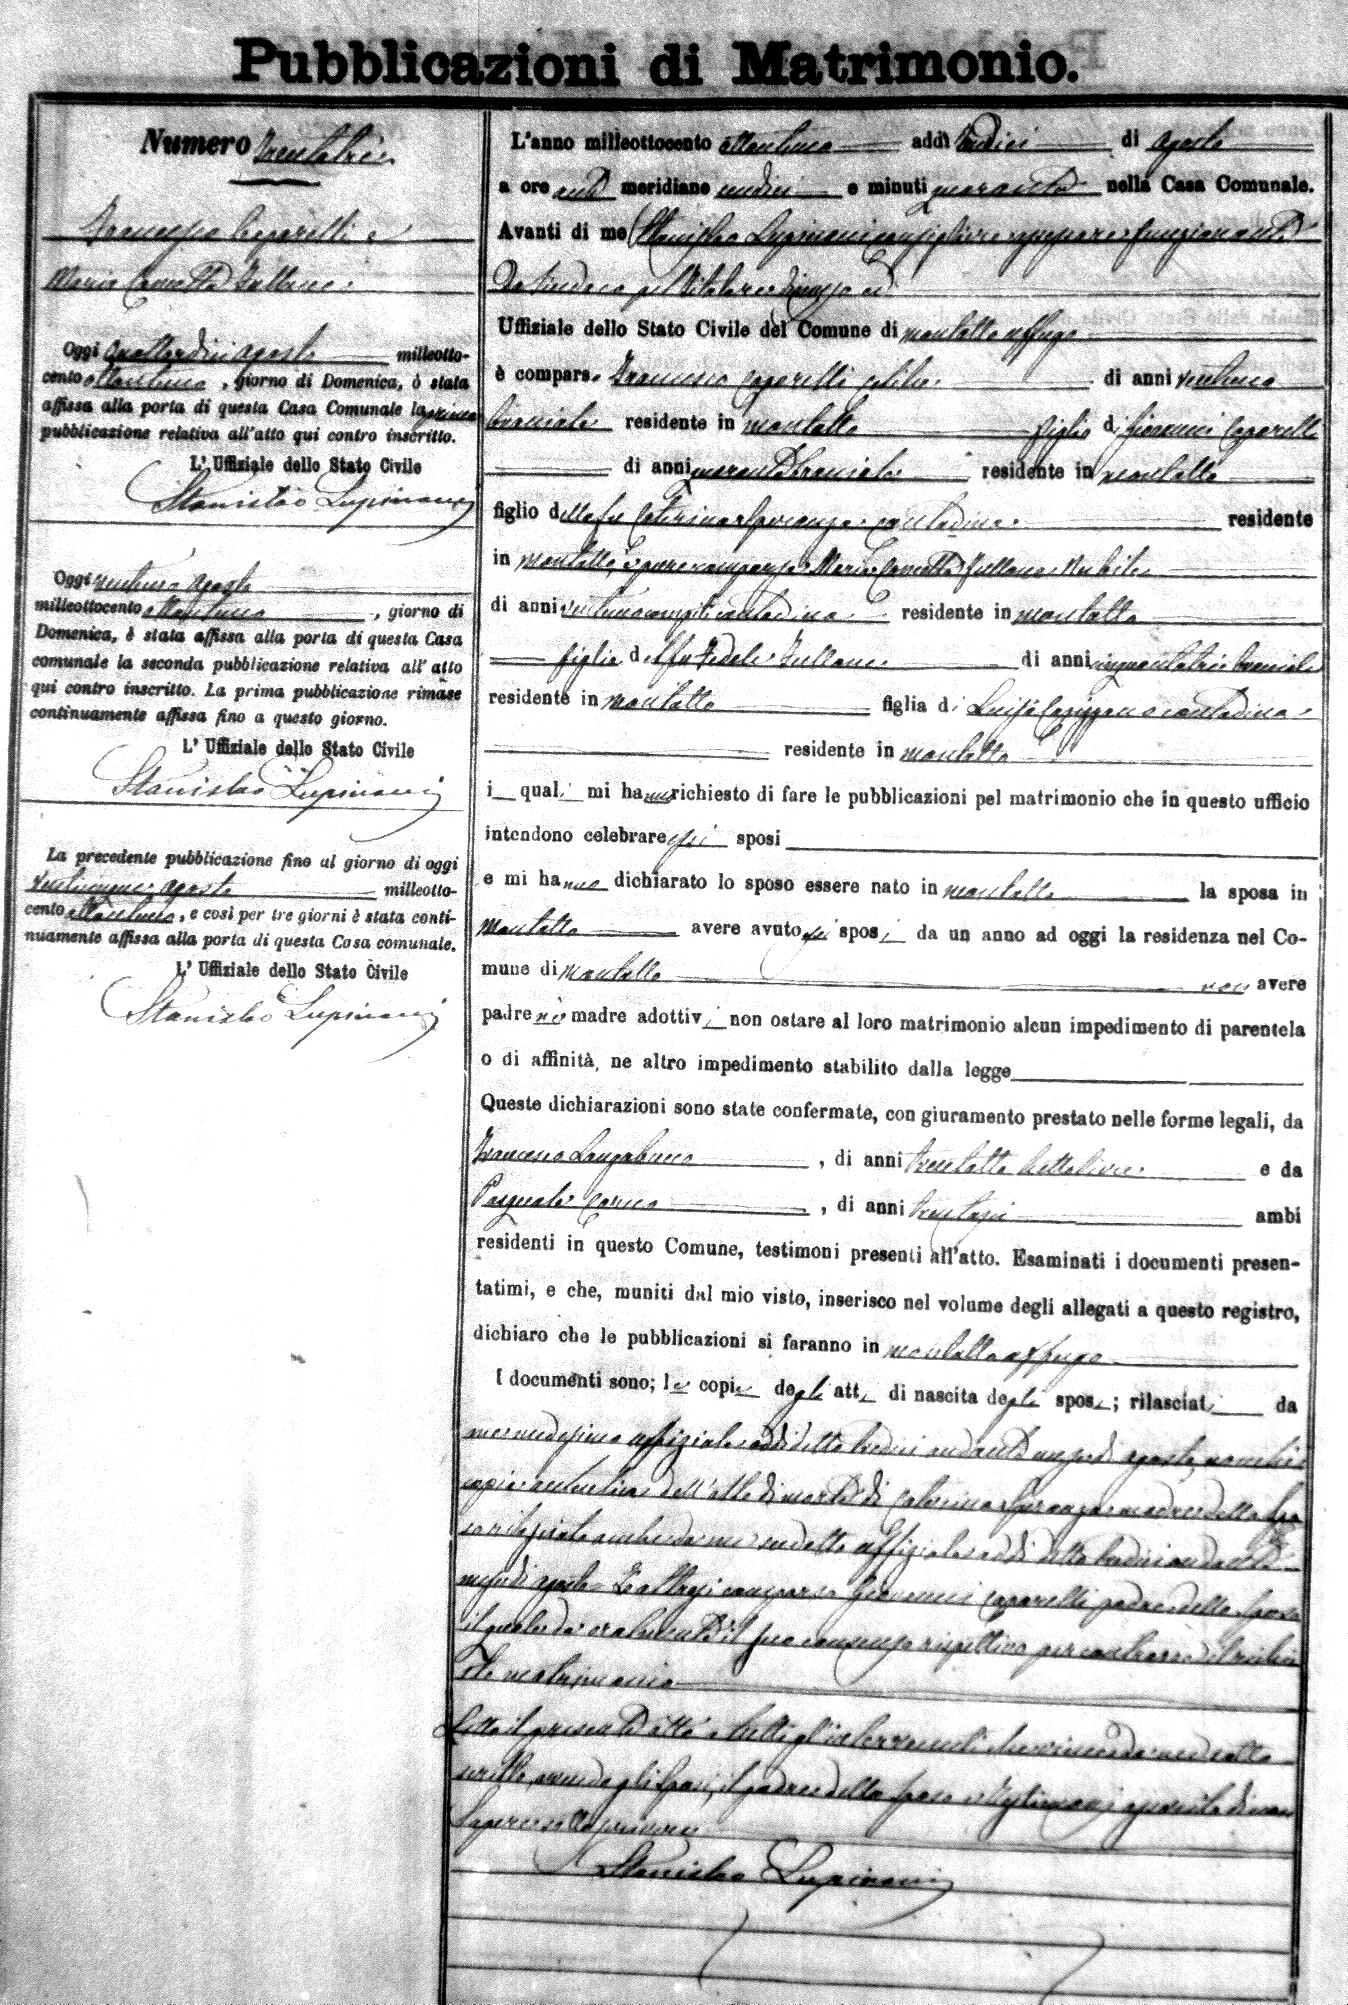 Pubblicazioni di Matrimonio.
Numero Trentatrè
Francesco Caparelli e
Maria Fullone
Oggi quattordici agosto milleotto-
cento ottantuno, giorno di Domenica, è stata
affissa alla porta di questa Casa Comunale la prima
pubblicazione relativa all'atto qui contro inscritto.
L'Uffiziale dello Stato Civile
Stanislao Lupinacci
Oggi ventuno agosto
milleottocento ottantuno, giorno di
Domenica, è stata affissa alla porta di questa Casa
comunale la seconda pubblicazione relativa all'atto
qui contro inscritto. La prima pubblicazione rimase
continuamente affissa fino a questo giorno.
L'Uffiziale dello Stato Civile
Stanislao Lupinacci
La precedente pubblicazione fino al giorno di oggi
agosto milleotto-
cento ottantuno, e così per tre giorni è stata conti-
nuamente affissa alla porta di questa Casa comunale.
L'Uffiziale dello Stato Civile
Stanislao Lupinacci
L'anno milleottocento ottantuno addì tredici di agosto
a ore anti meridiane undici e minuti quaranta nella Casa Comunale.
Avanti di me Stanislao Lupinacci consigliere funzionante
Da Sindaco pel titolare ed
Uffiziale dello Stato Civile del Comune di montalto uffugo
è compars o Francesco Caparelli celibe di anni ventuno
bracciale residente in montalto figlio di Giovanni Caparelli
di anni bracciale residente in montalto
figlio della fu Caterina Speranza contadina residente
in montalto, è pure comparsa Maria Fullone nubile
di anni ventuno compiti contadina residente in montalto
figlia del fu Fedele Fullone di anni cinquantatrè bracciale
residente in montalto figlia di Luisa contadina
residente in montalto
i quali mi hanno richiesto di fare le pubblicazioni pel matrimonio che in questo ufficio
intendono celebrare essi sposi
e mi hanno dichiarato lo sposo essere nato in montalto la sposa in
montalto avere avuto essi sposi da un anno ad oggi la residenza nel Co-
mune di montalto non avere
padre nè madre adottivi non ostare al loro matrimonio alcun impedimento di parentela
o di affinità, ne altro impedimento stabilito dalla legge
Queste dichiarazioni sono state confermate, con giuramento prestato nelle forme legali, da
Francesco, di anni trentotto e da
Pasquale, di anni trentasei ambi
residenti in questo Comune, testimoni presenti all'atto. Esaminati i documenti presen-
tatimi, e che, muniti dal mio visto, inserisco nel volume degli allegati a questo registro,
dichiaro che le pubblicazioni si faranno in montalto uffugo
I documenti sono; le copie degli atti di nascita degli sposi; rilasciati da
me medesimo uffiziale addì detto tredici andante mese di agosto, nonchè
copia autentica dell'atto di morte di Caterina Speranza madre dello spo
so rilasciata anche da me sudetto uffiziale addì detto tredici andante
mese di agosto. È altresì comparso Giovanni Caparelli padre dello sposo
il quale dà oralmente il suo consenso rispettivo per contrarre il
matrimonio
Letto il presente atto a tutti gl'intervenuti
scritto, avendo gli sposi, il padre dello sposo e testimoni asserito di non
sapere sottoscrivere
Stanislao Lupinacci